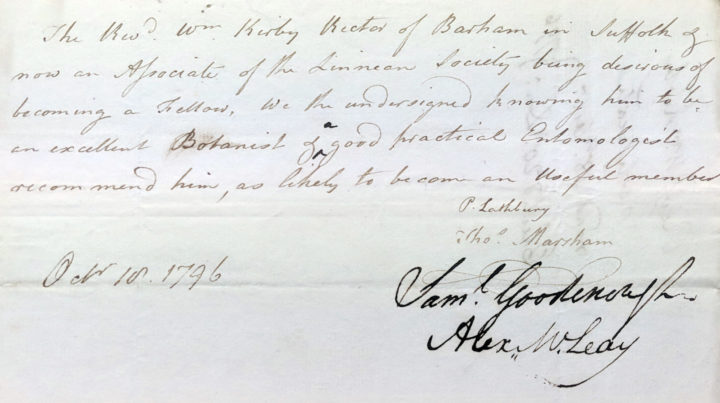 The Revd. Wm Kirby Rector of Barham in Suffolk &
now an Associate of the Linnean Society being desirous of
becoming a Fellow, We the undersigned knowing him to be
an excellent Botanist & a good practical Entomologist
recommend him, as likely to become an Useful member
P. Lathbury
Thos. Marsham
Octr 18. 1796
Saml. Goodenough
Alex. McLeay